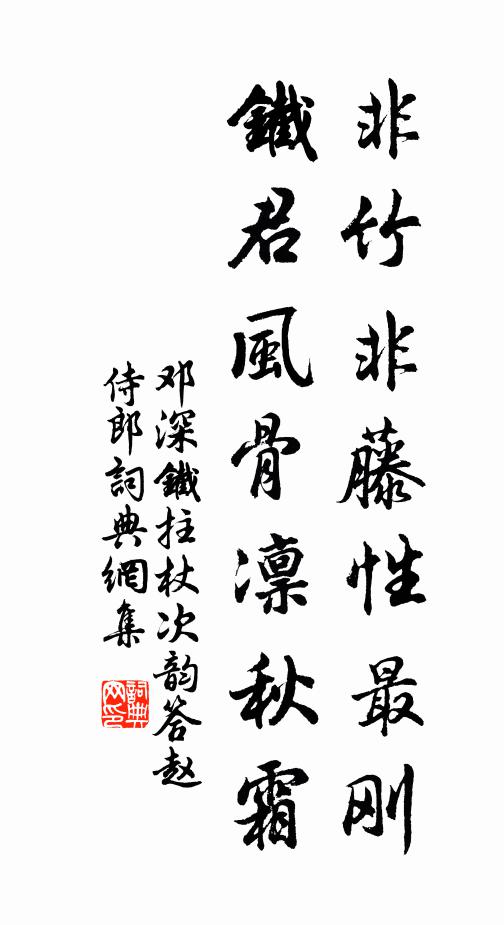 非竹非藤性最刚
鐵君風骨凛秋霜
邓深鐵拄杖次韵答赵
侍郎詞典網集
詞典
网印